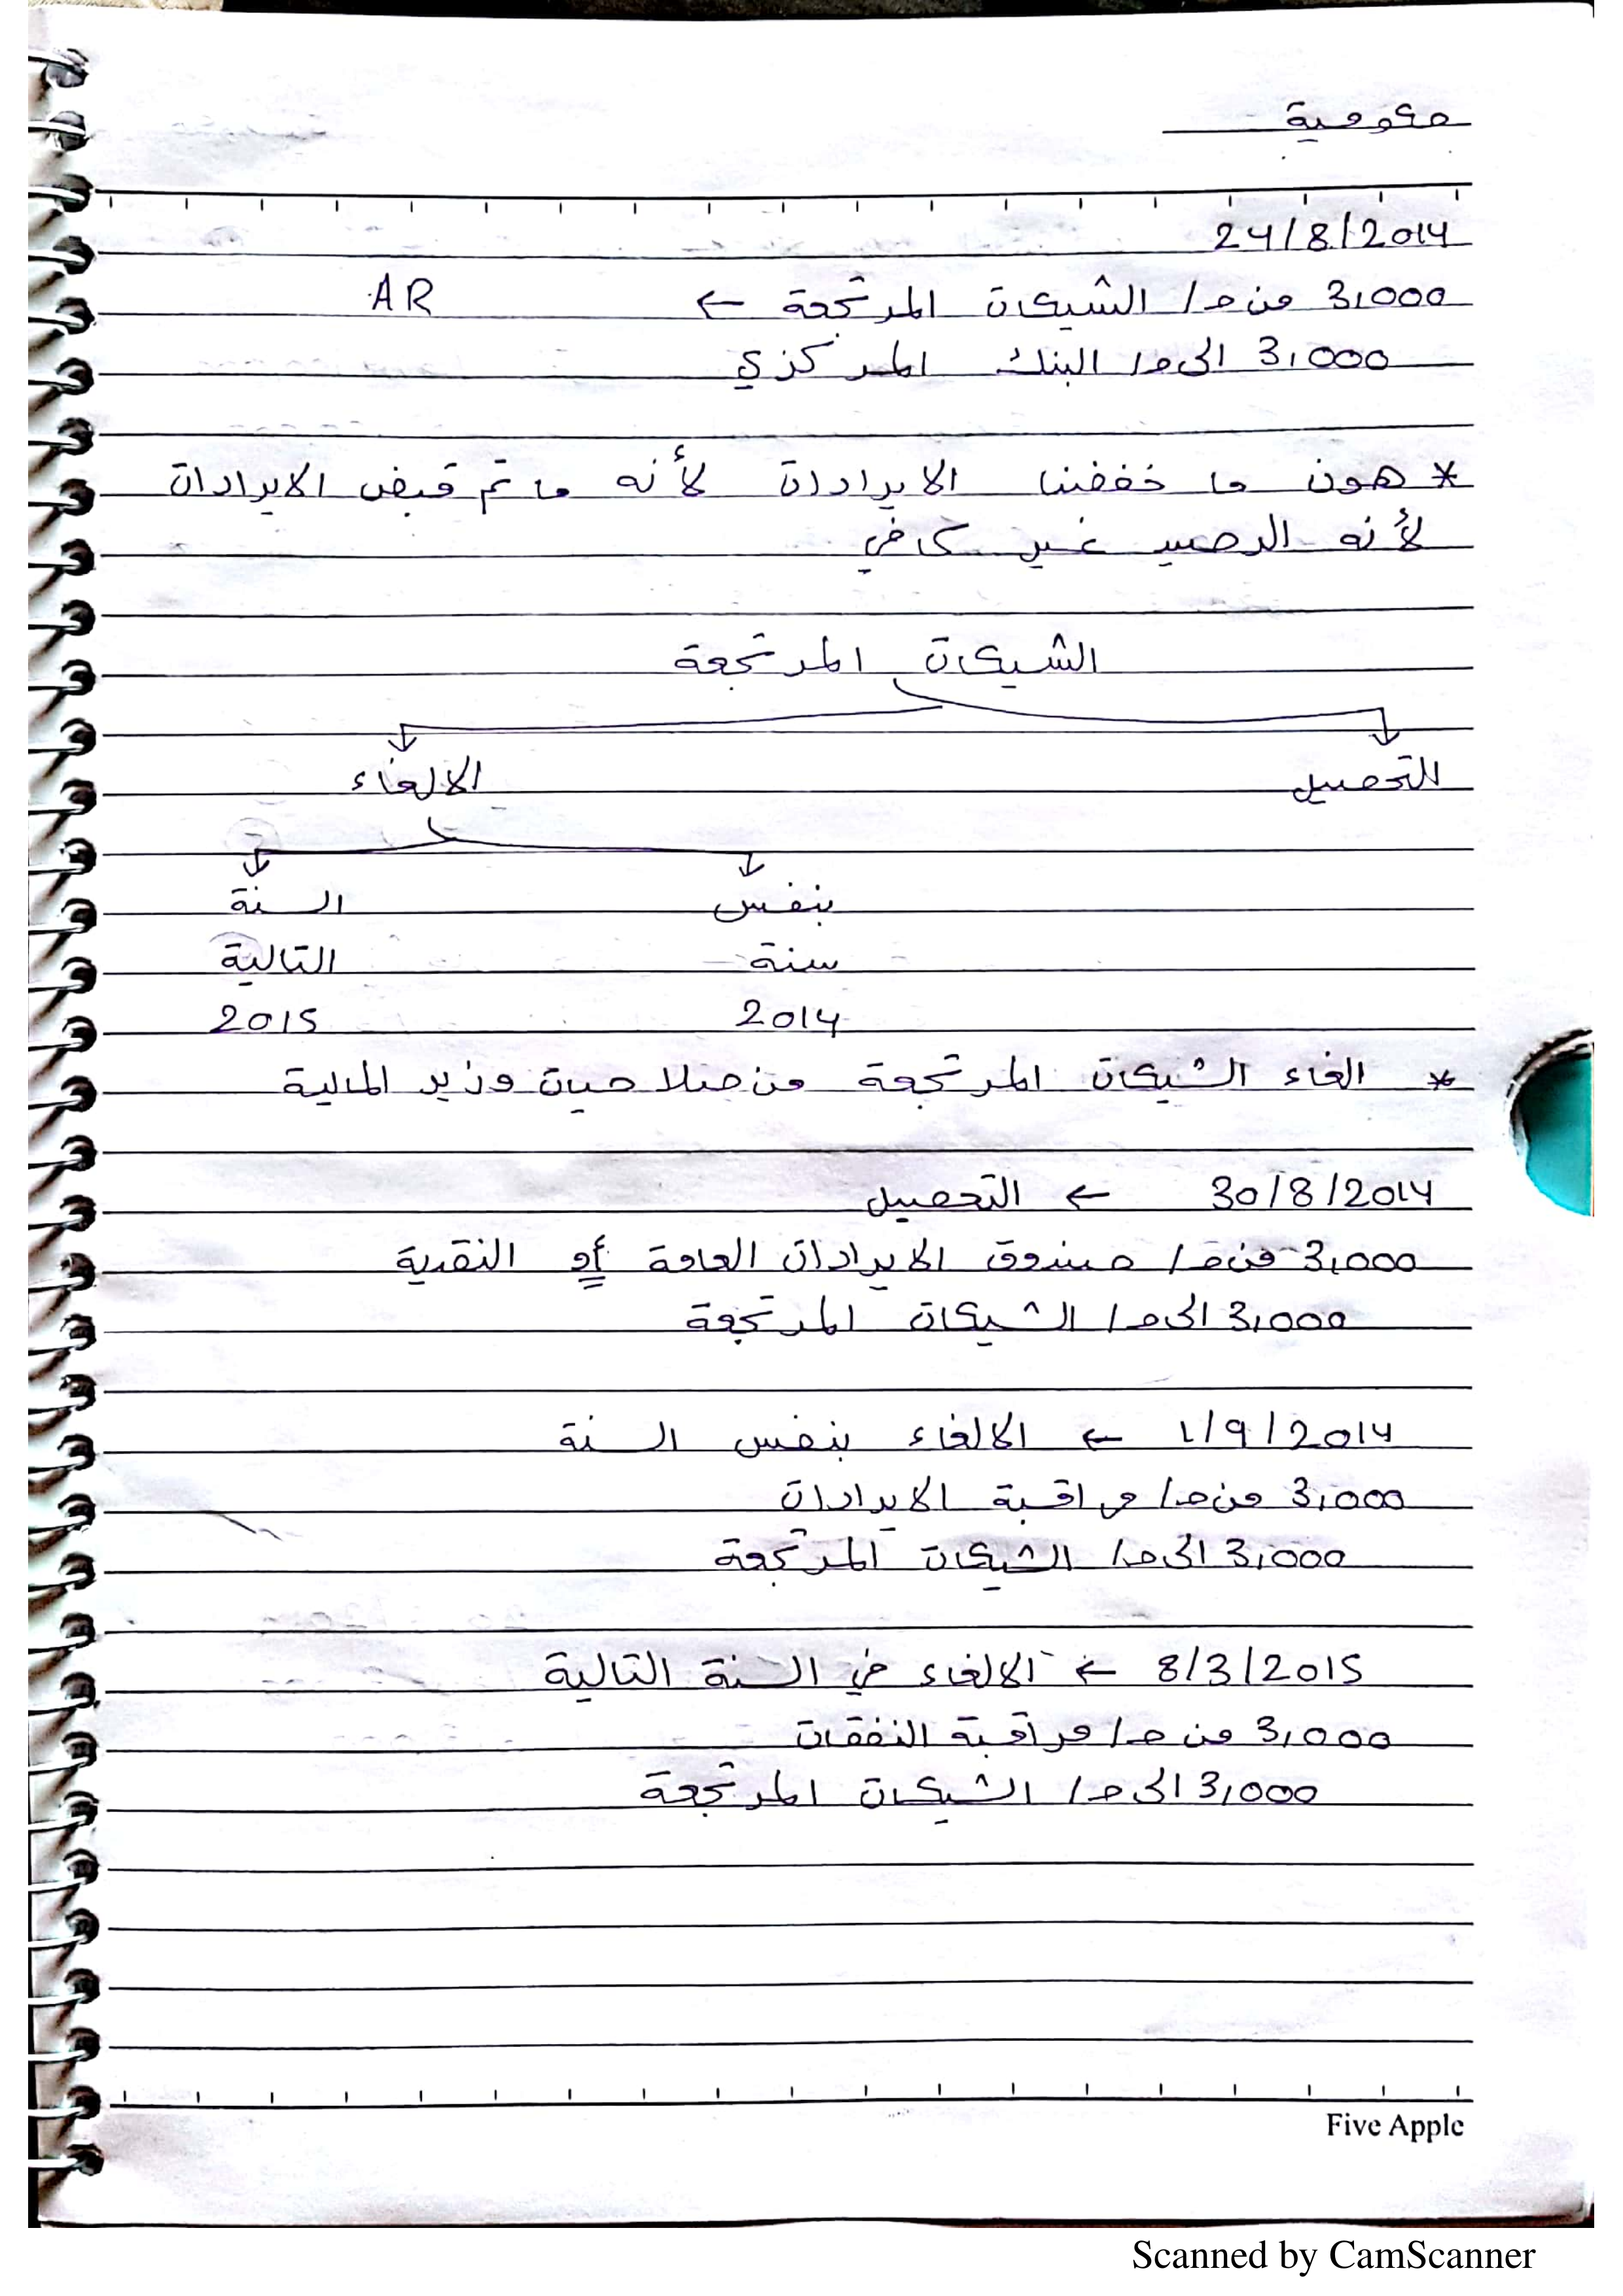 حكومية
24/8/2014
3,000 من حـ/ الشيكات المرتجعة ← AR
3,000 الى حـ/ البنك المركزي
* هون ما خففنا الايرادات لأنه ما تم قبض الايرادات
لأنه الرصيد غير كافي
الشيكات المرتجعة
للتحصيل الالغاء
بنفس السنة
سنة التالية
2014 2015
* الغاء الشيكات المرتجعة من صلاحيات وزير المالية
30/8/2014 ← التحصيل
3,000 من حـ/ صندوق الايرادات العامة أو النقدية
3,000 الى حـ/ الشيكات المرتجعة
1/9/2014 ← الالغاء بنفس السنة
3,000 من حـ/ مراقبة الايرادات
3,000 الى حـ/ الشيكات المرتجعة
8/3/2015 ← الالغاء في السنة التالية
3,000 من حـ/ مراقبة النفقات
3,000 الى حـ/ الشيكات المرتجعة
Five Apple
Scanned by CamScanner